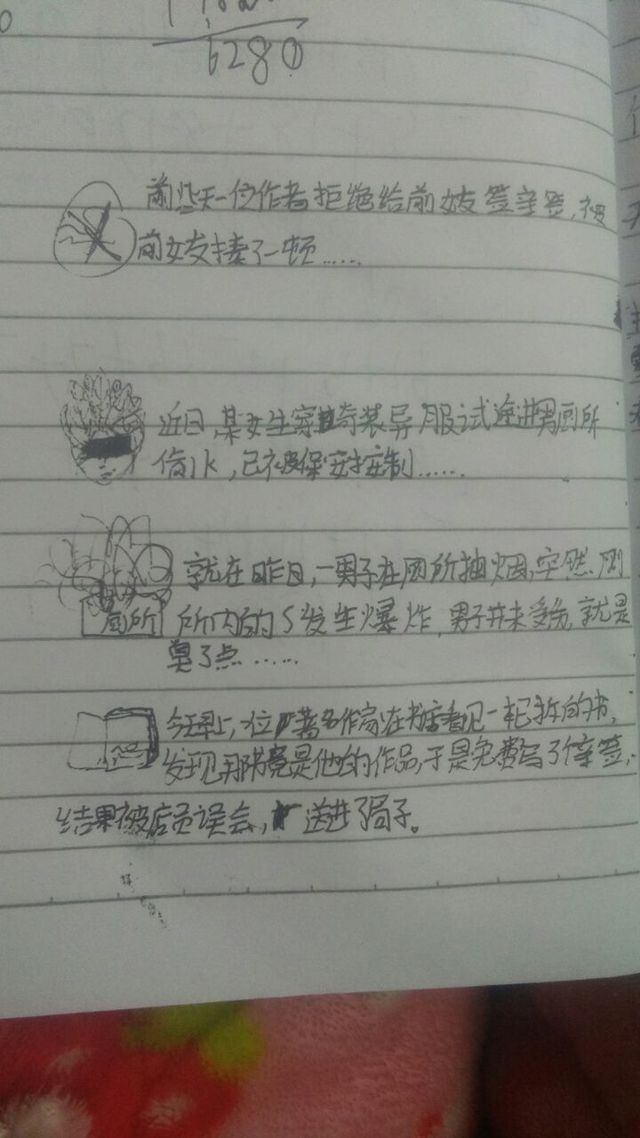 6280
前些天一位作者拒绝给前女友签亲签,被
前女友揍了一顿……
近日某女生穿奇装异服试途进男厕所
偷小k,已被保安控制……
就在昨日,一男子在厕所抽烟,突然厕
厕所 所内的S发生爆炸,男子并未受伤,就是
臭了点……
今早上,一位著名作家在书店看见一本己拆的书,
发现那书竟是他的作品,于是免费写了个亲签,
结果被店员误会,送进了局子。